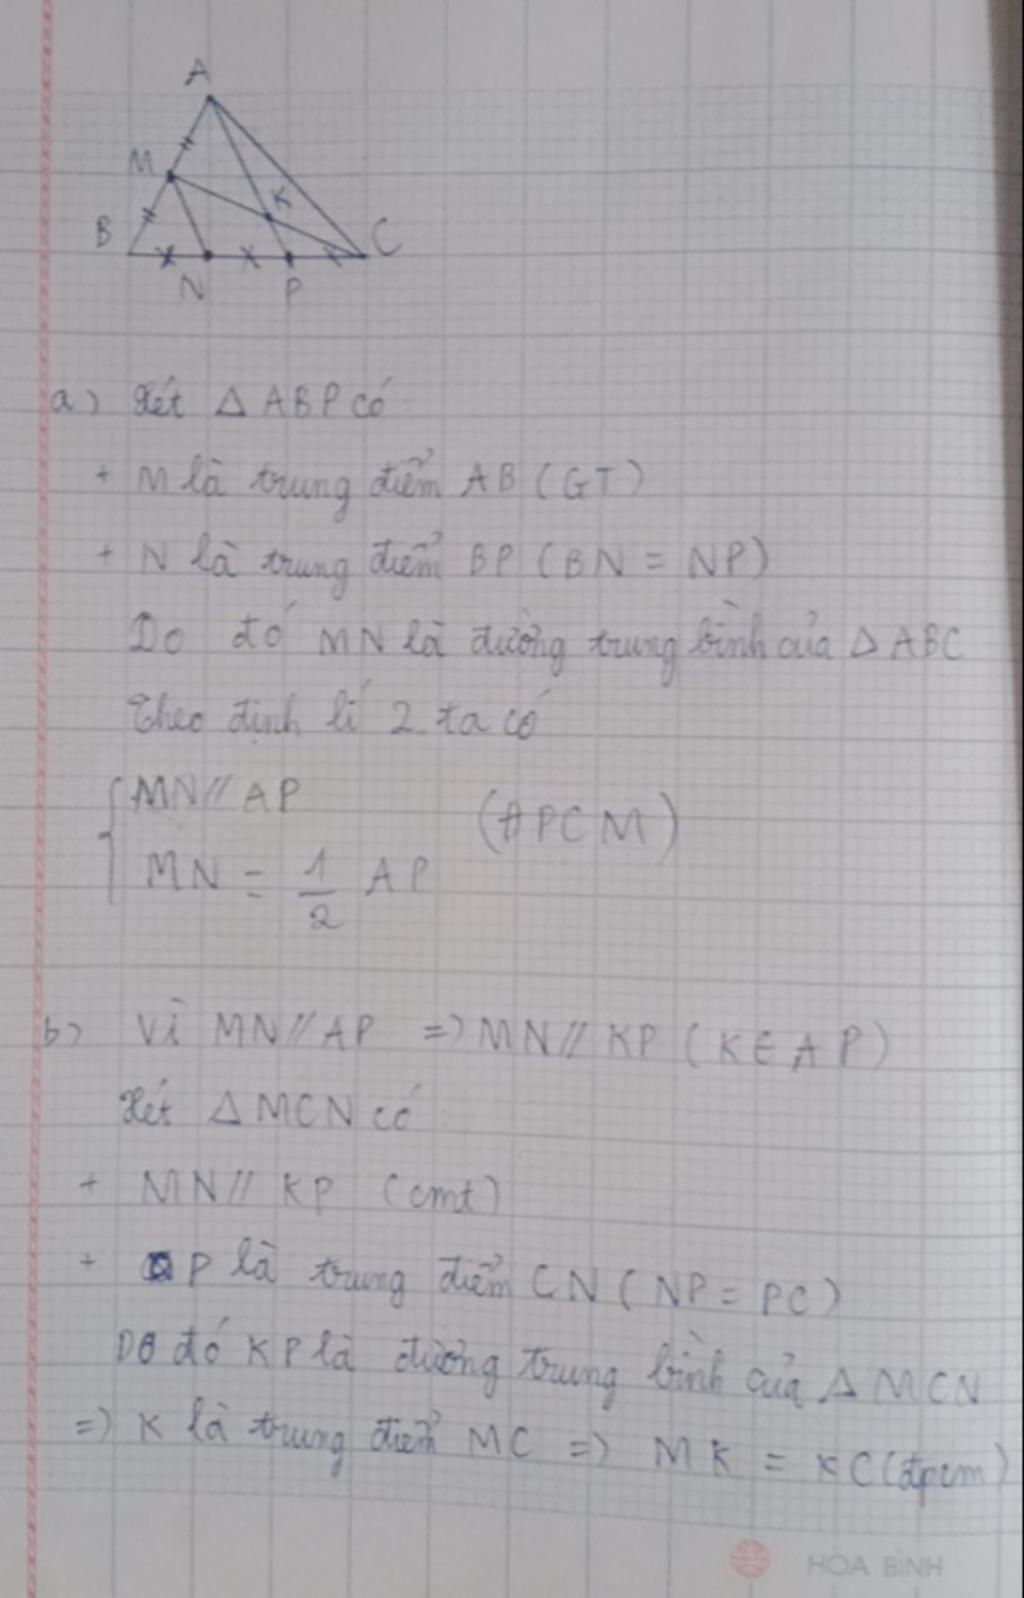 A
M
K
B
C
N
P
a) Xét △ABP có
+ M là trung điểm AB (GT)
+ N là trung điểm BP (BN = NP)
Do đó MN là đường trung bình của △ABC
Theo định lí 2 ta có
MN // AP
(ĐPCM)
MN = 1/2 AP
b) Vì MN // AP => MN // KP (K ∈ AP)
Xét △MCN có
+ MN // KP (cmt)
+ P là trung điểm CN (NP = PC)
Do đó KP là đường trung bình của △MCN
=> K là trung điểm MC => MK = KC (đpcm)
HÒA BÌNH